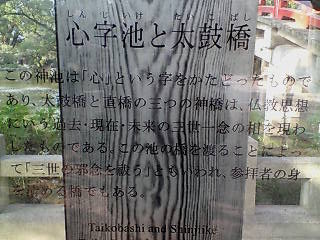 しんじいけ たいこばし
心字池と太鼓橋
この神池は「心」という字をかたどったもので
あり、太鼓橋と直橋の三つの神橋は、仏教思想
にいう過去・現在・未来の三世一念の相を現わ
したものである。この池の橋を渡ることによっ
て「三世の邪念を祓う」ともいわれ、参拝者の身
を清める橋でもある。
Taikobashi and Shinjiike